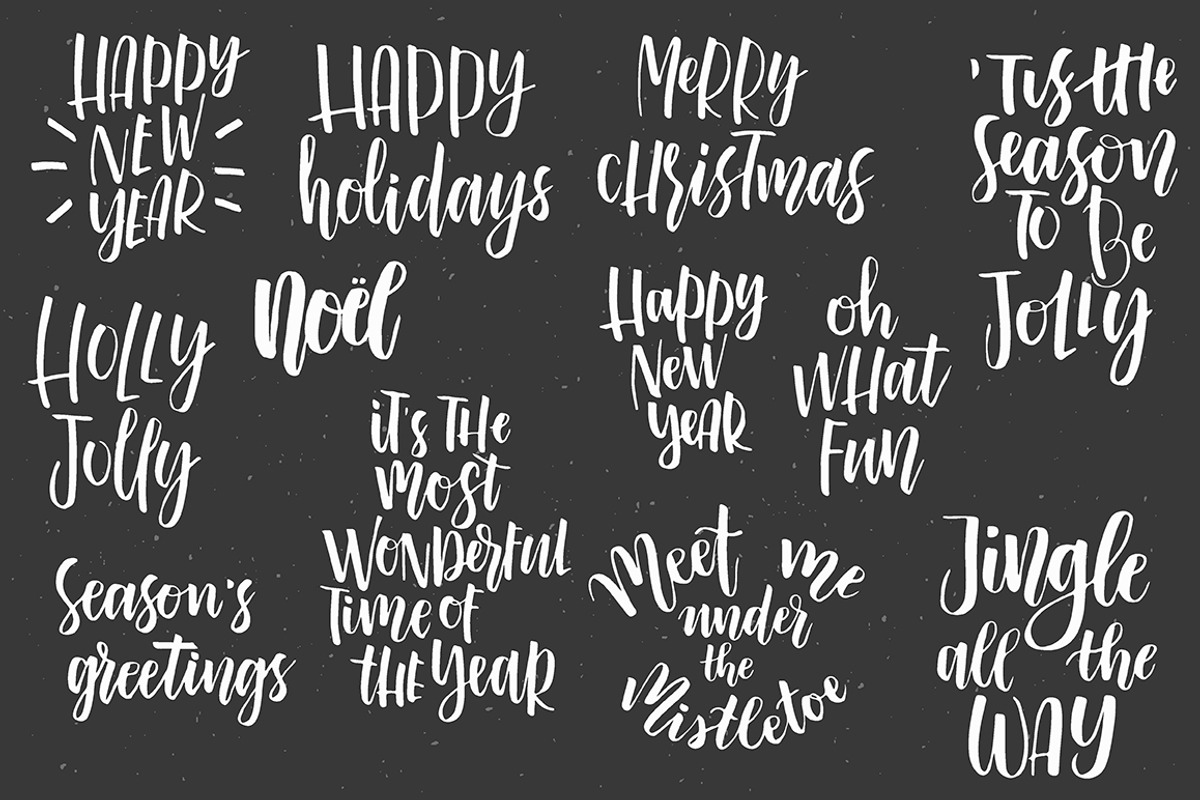 HAPPY
NEW
YEAR
HAPPY
holidays
MeRRY
cHRisTmas
'Tis tHe
season
To Be
JoLLY
HoLLY
Jolly
noël
Happy
New
YeAR
oh
wHat
Fun
iT's THe
most
WoNDerFul
Time of
tHE YeaR
Season's
greetings
Meet me
under
the
Mistletoe
Jingle
all the
WAY